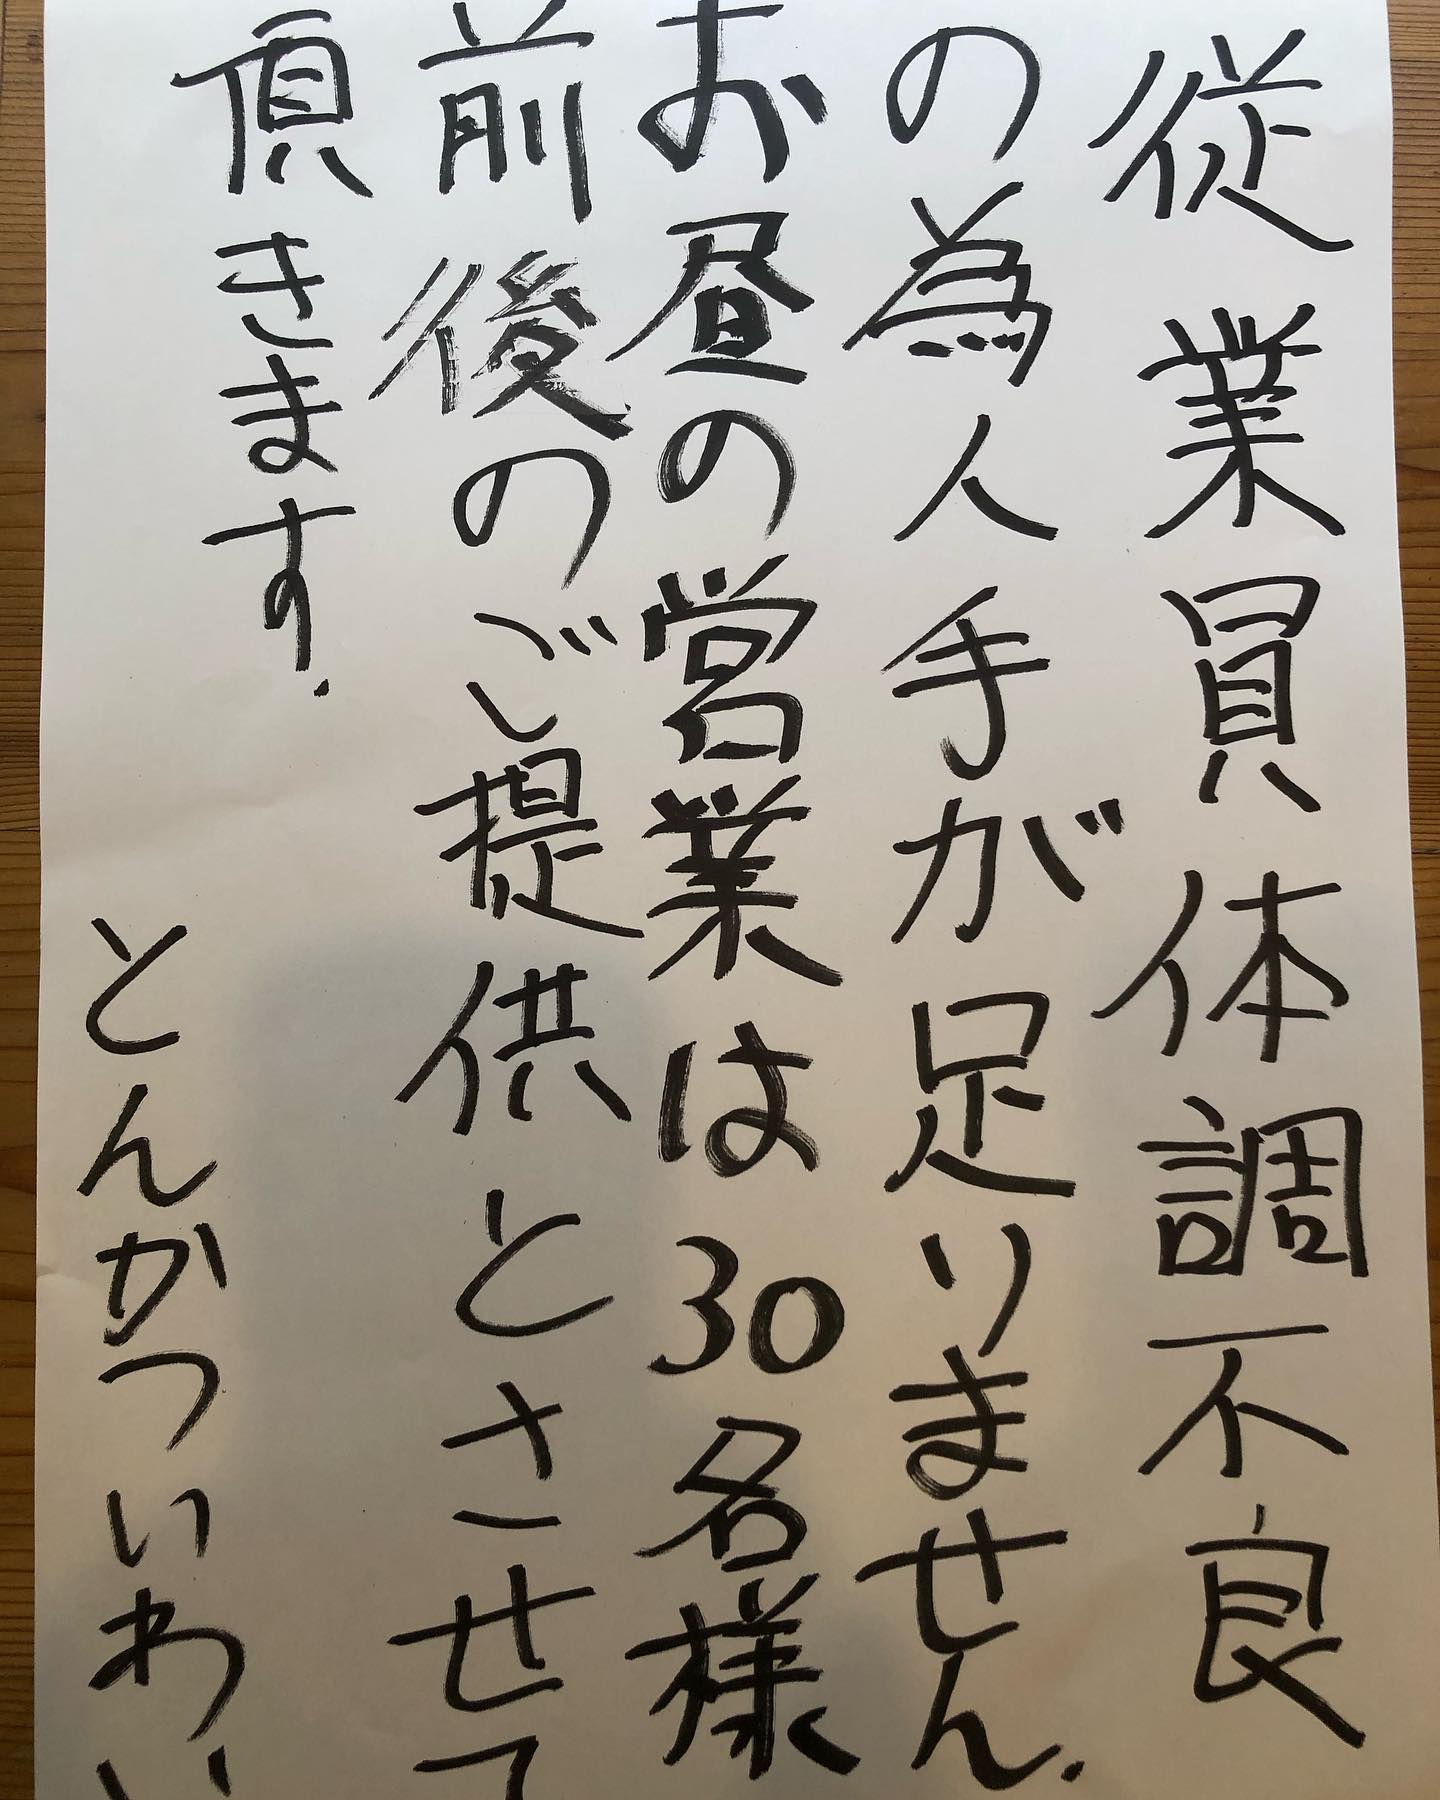 従業員体調不良
の為人手が足りません.
お昼の営業は30名様
前後のご提供とさせて
頂きます.
とんかついわい